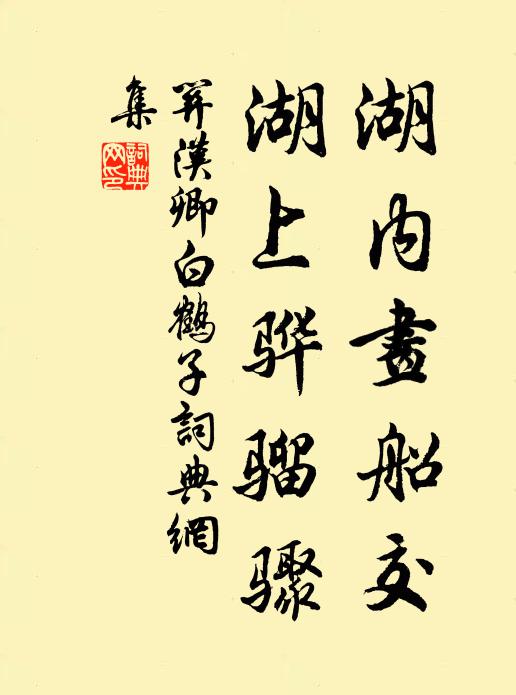 湖内畫船交
湖上骅骝骤
關漢卿白鶴子詞典網
集
詞典
网印